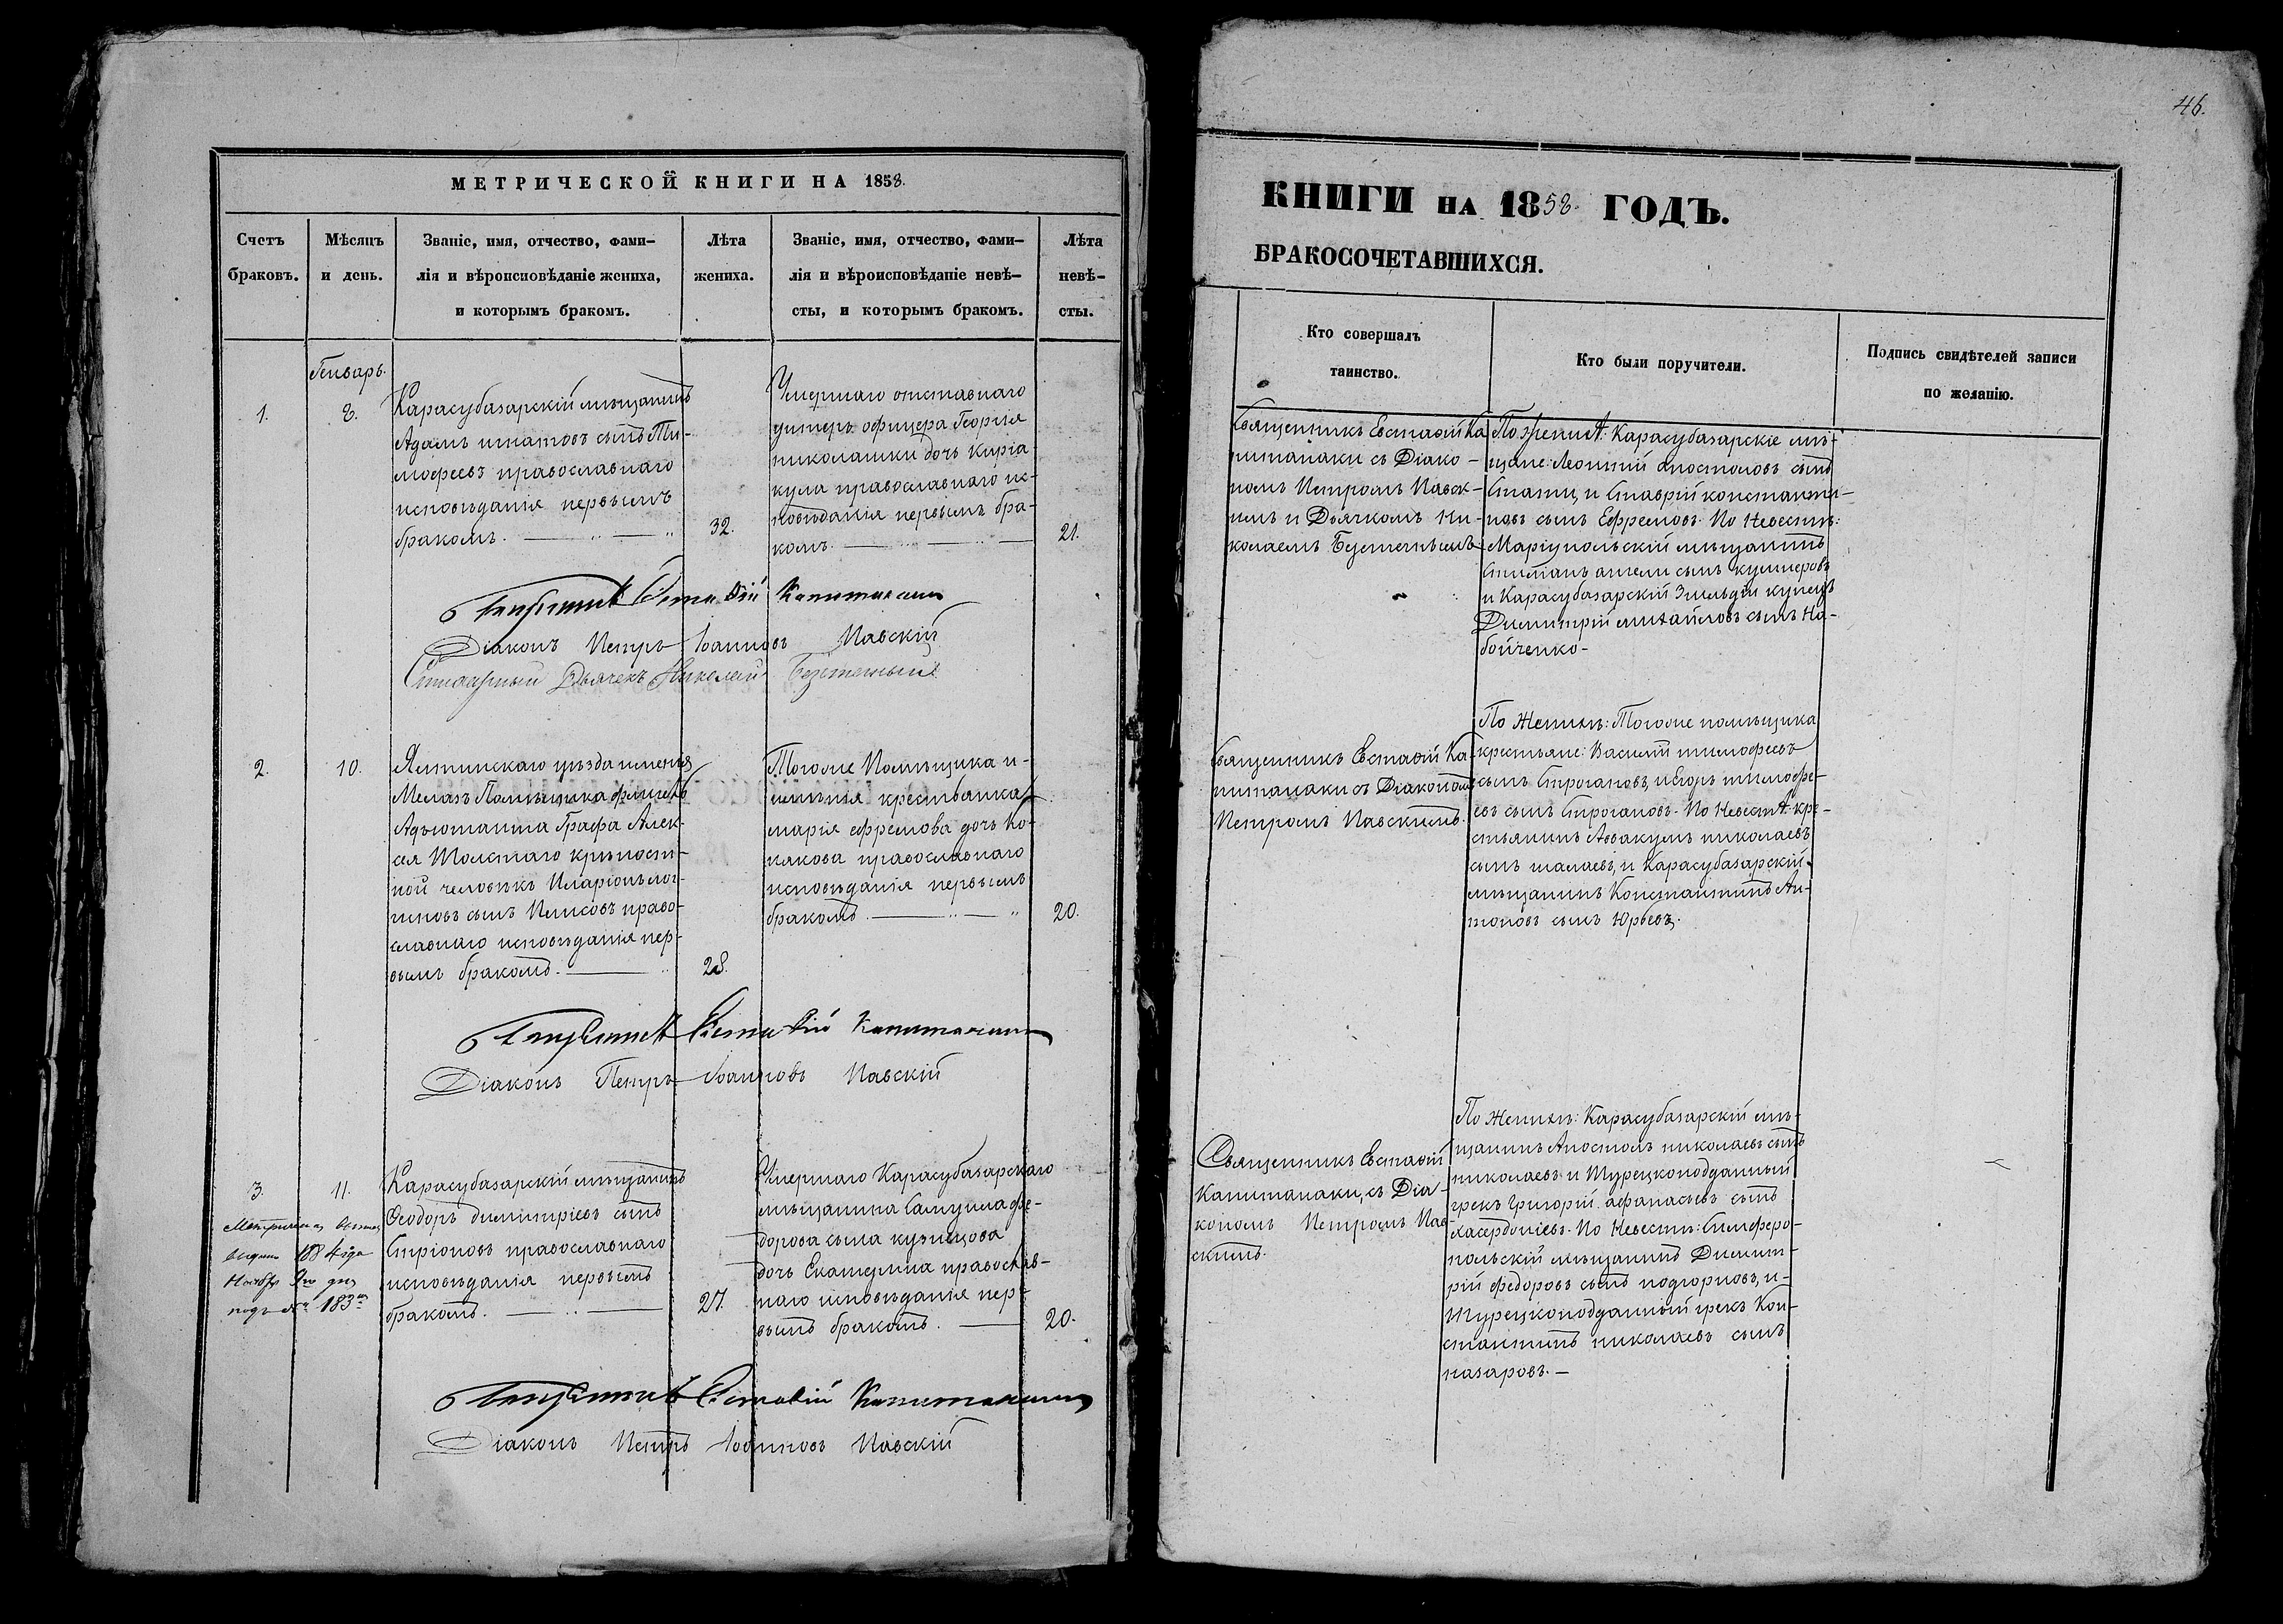 МЕТРИЧЕСКОЙ КНИГИ НА 1858.
Счетъ
браковъ.
Мѣсяцъ
и день.
Званіе, имя, отчество, фами-
лія и вѣроисповѣданіе жениха,
и которымъ бракомъ.
Лѣта
жениха.
Званіе, имя, отчество, фами-
лія и вѣроисповѣданіе невѣ-
сты, и которымъ бракомъ.
Лѣта
невѣ-
сты.
Генварь.
1.
8.
Карасубазарскій мѣщанинъ
Адамъ игнатовъ сынъ Ти-
мофеевъ православнаго
исповѣданія первымъ
бракомъ.
32.
Умершаго отставнаго
унтеръ офицера Георгія
николашки дочь Киріа-
кула православнаго ис-
повѣданія первымъ бра-
комъ.
21.
Священникъ Евстафій Капитанаки
Діаконъ Петръ Іоанновъ Павскій
Дьячекъ Николай
2.
10.
Ялтинскаго уѣзда имѣнія
Меласъ Помѣщика флигель
Адъютанта Графа Алек-
сея Толстаго крѣпост-
ной человѣкъ Иларіонъ лог-
гиновъ сынъ право-
славнаго исповѣданія пер-
вымъ бракомъ.
28.
Тогоже Помѣщика и-
имѣнія крестьянка
марія ефремова дочь Ко-
някова православнаго
исповѣданія первымъ
бракомъ.
20.
Священникъ Евстафій Капитанаки
Діаконъ Петръ Іоанновъ Павскій
3.
11.
Карасубазарскій мѣщанинъ
Феодоръ димитріевъ сынъ
Стріоновъ православнаго
исповѣданія первымъ
бракомъ.
27.
Умершаго Карасубазарскаго
мѣщанина Самуила фе-
дорова сына кузнецова
дочь Екатерина православ-
наго исповѣданія пер-
вымъ бракомъ.
20.
выдана 1884 года
Ноября 9го дня
подъ № 183
Священникъ Евстафій Капитанаки
Діаконъ Петръ Іоанновъ Павскій
46.
КНИГИ НА 1858. ГОДЪ.
БРАКОСОЧЕТАВШИХСЯ.
Кто совершалъ
таинство.
Кто были поручители.
Подпись свидѣтелей записи
по желанію.
Священникъ Евстафій Ка
питанаки съ Діако-
номъ Петромъ Павск-
имъ и Дьячкомъ Ни-
колаемъ
Карасубазарскіе мѣ-
щане: Леонтій апостоловъ сынъ
и Ставрій константи-
новъ сынъ Ефремовъ. По Невестѣ:
Маріупольскій мѣщанинъ
сынъ кушнеровъ
и Карасубазарскій купецъ
Димитрій михайловъ сынъ На-
бойченко-
Священникъ Евстафій Ка-
питанаки съ Діакономъ
Петромъ Павскимъ.
По Женихѣ: Тогоже помѣщика
крестьяне: Василій тимофеевъ
сынъ Строгановъ, и Егоръ тимофе-
евъ сынъ Строгановъ. По Невестѣ: кре-
стьянинъ Аввакумъ николаевъ
сынъ малаевъ, и Карасубазарскій
мѣщанинъ Константинъ Ан-
тоновъ сынъ Юрьевъ.
Священникъ Евстафій
Капитанаки, съ Діа-
кономъ Петромъ Пав-
скимъ.
По Женихѣ: Карасубазарскій мѣ-
щанинъ Апостолъ николаевъ сынъ
николаевъ и Турецкоподданный
грекъ Григорій афанасьевъ сынъ
По Невестѣ: Симферо-
польскій мѣщанинъ Димит-
рій федоровъ сынъ подгорновъ, и-
Турецкоподданный грекъ Кон-
стантинъ николаевъ сынъ
назаровъ.-